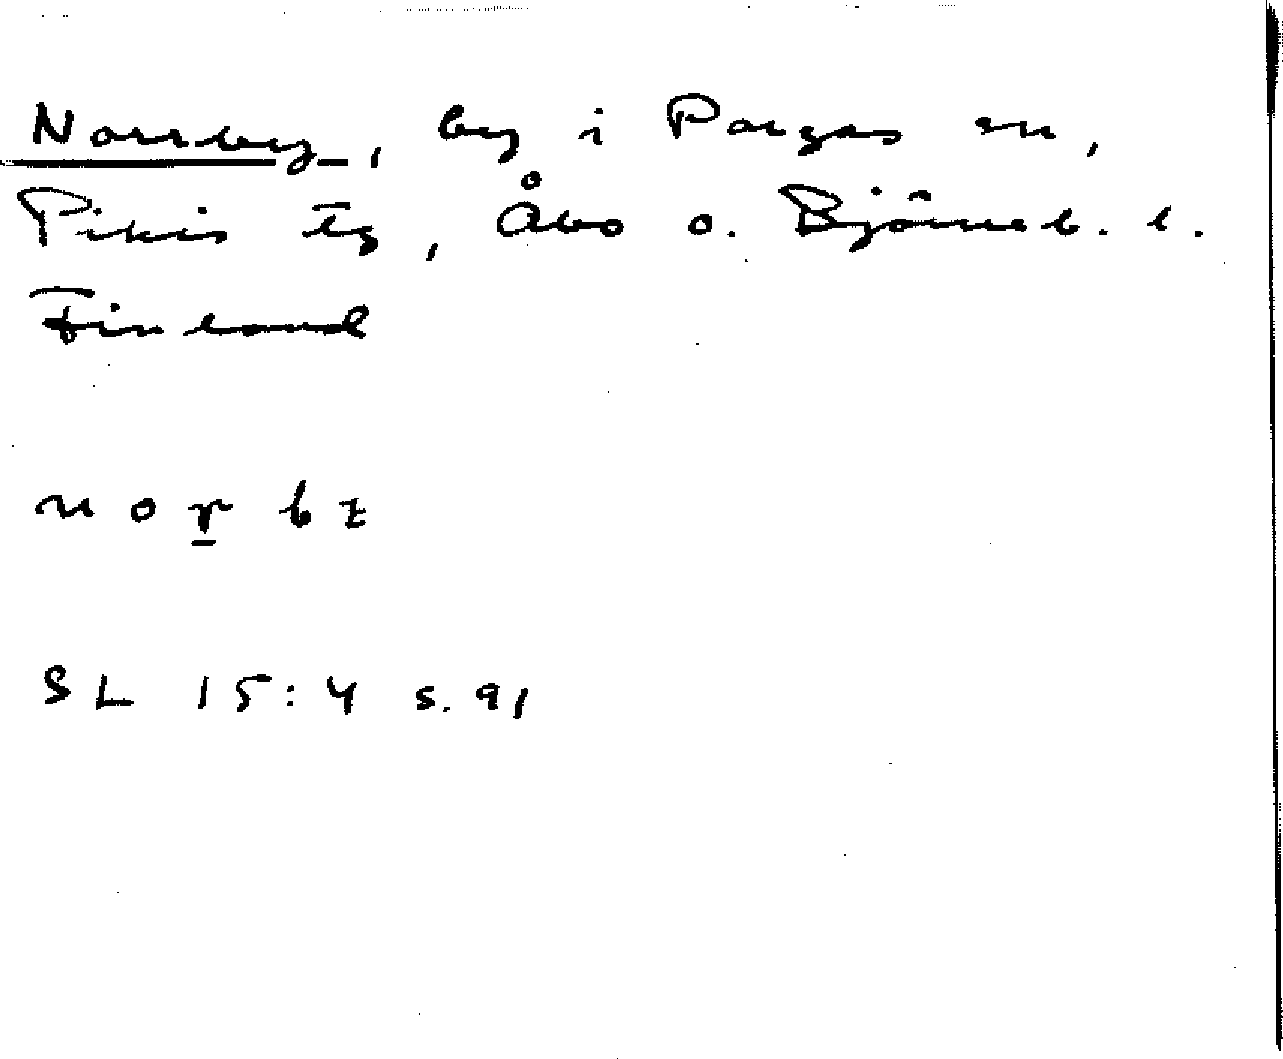 Norrby, by i Pargas sn,
Pikis tg, Åbo o. Björneb. l.
Finland
n o r b z
SL 15:4 s. 91